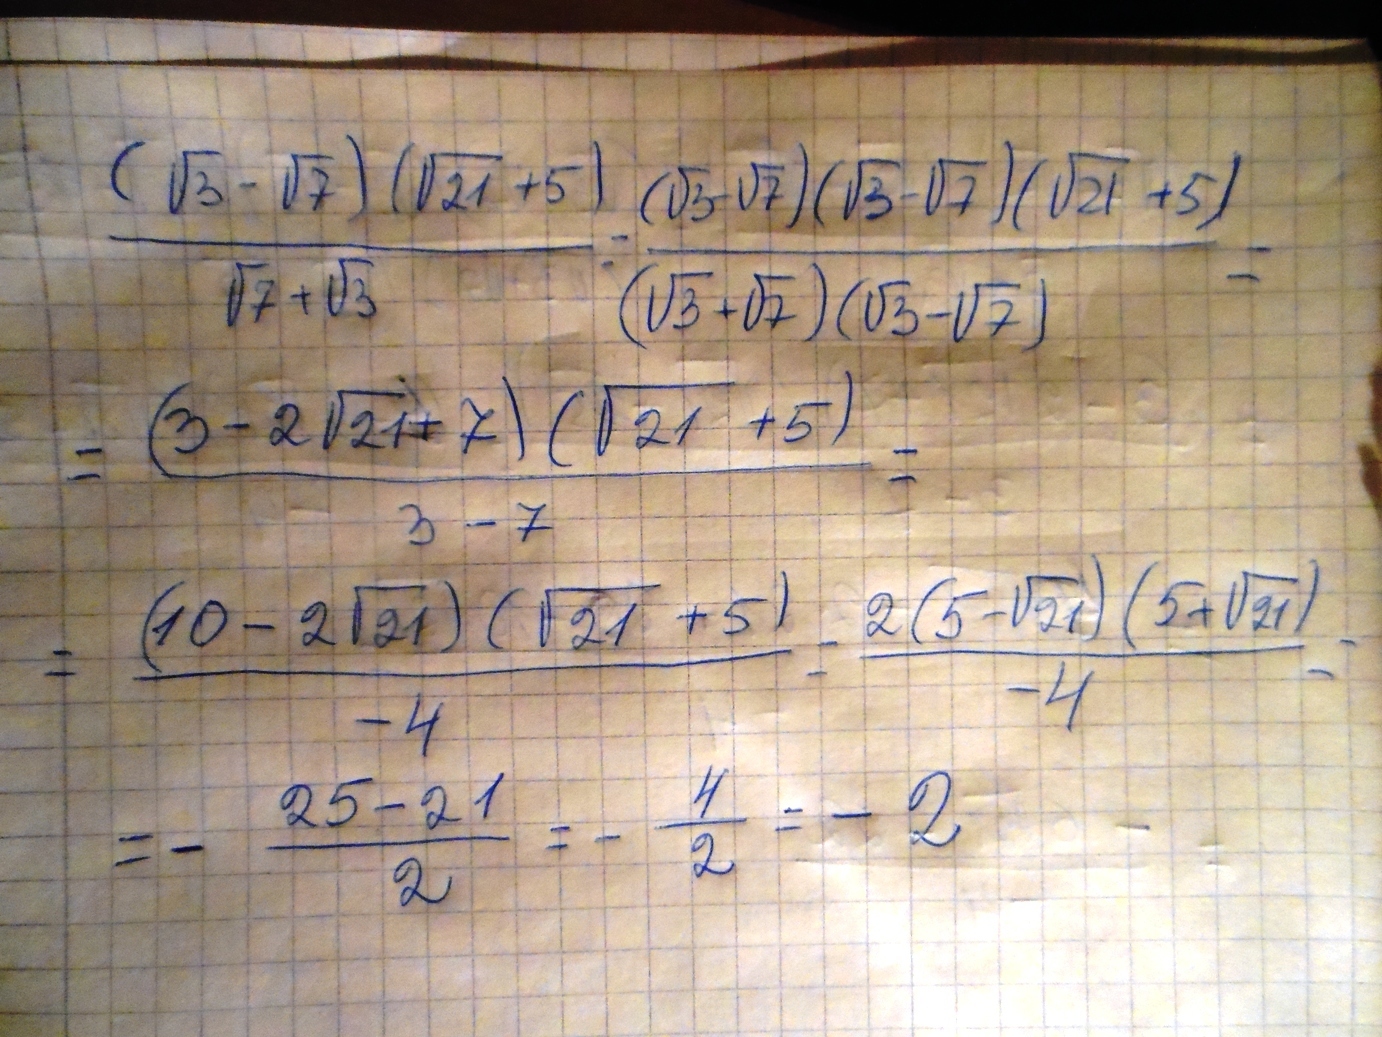 (√3 - √7)(√21 + 5) / √7 + √3 = (√3 - √7)(√3 - √7)(√21 + 5) / (√3 + √7)(√3 - √7) =
= (3 - 2√21 + 7)(√21 + 5) / 3 - 7 =
= (10 - 2√21)(√21 + 5) / -4 = 2(5 - √21)(5 + √21) / -4 =
= - 25 - 21 / 2 = - 4 / 2 = - 2